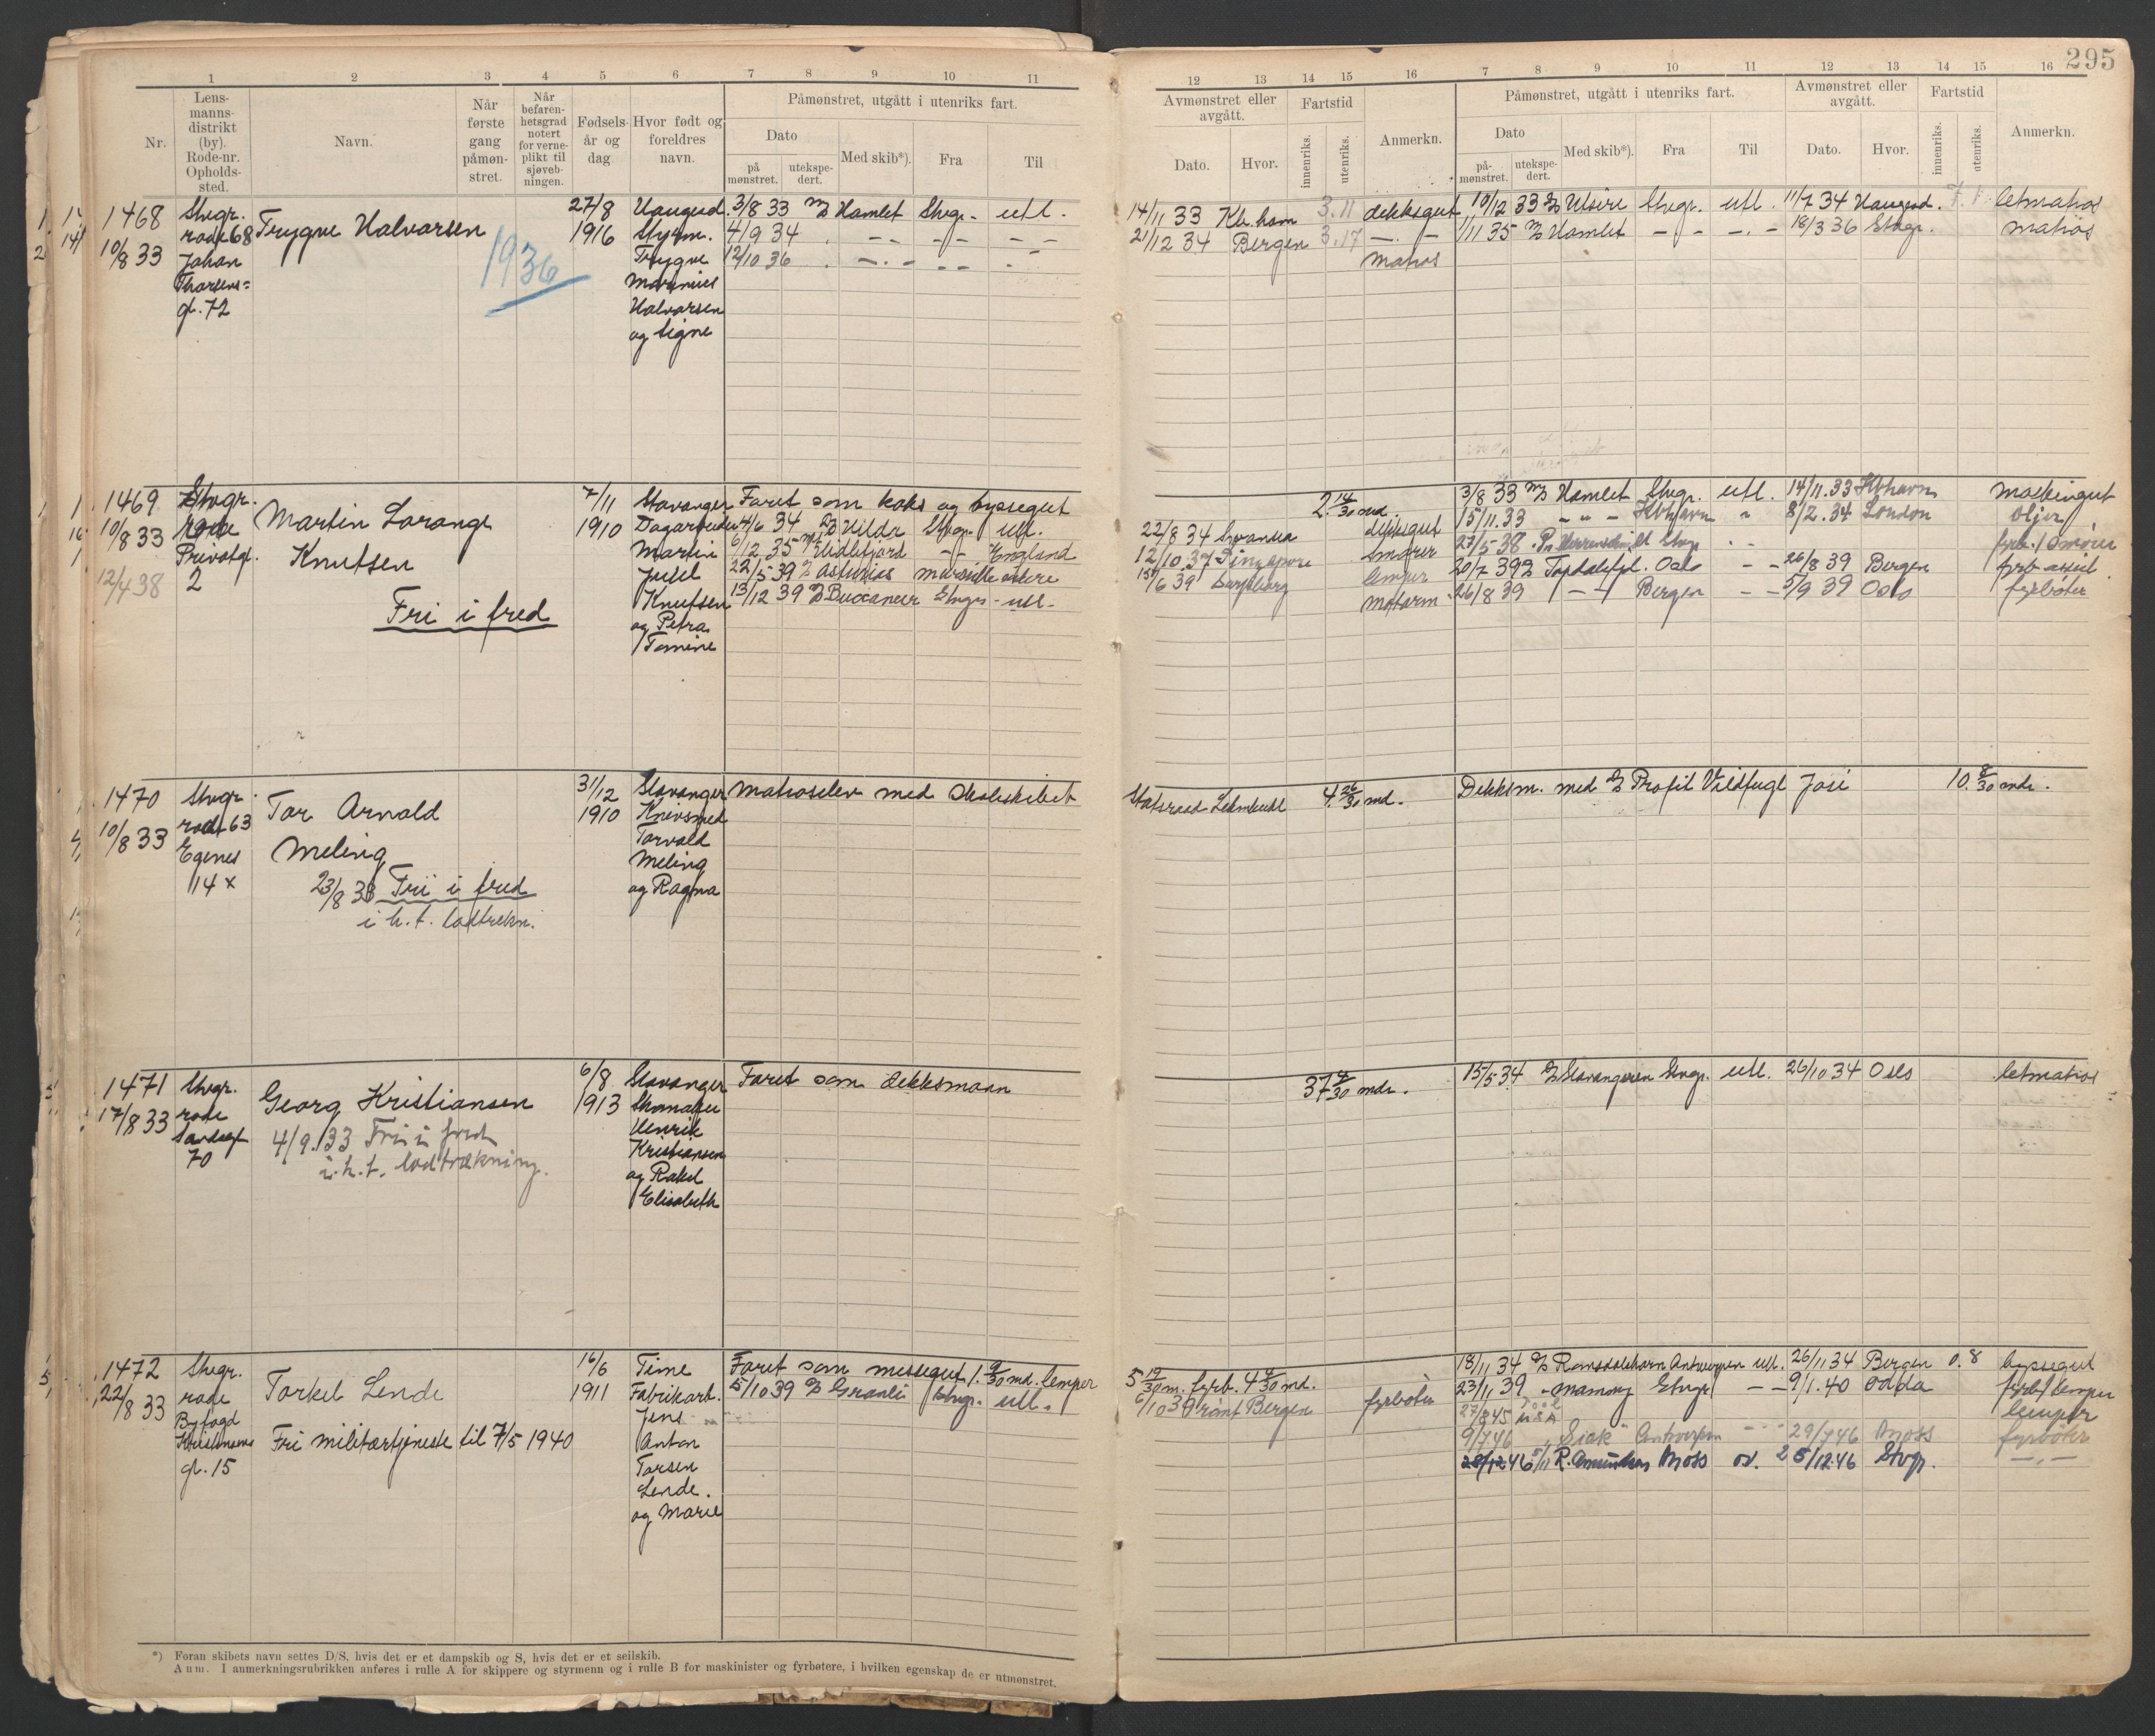 295
1 2 3 4 5 6 7 8 9 10 11
12 13 14 15 16 7 8 9 10 11 12 13 14 15 16
Nr.
Lens-
manns-
distrikt
(by).
Rode-nr.
Opholds-
sted.
Navn.
Når
første
gang
påmøn-
stret.
Når
befaren-
hetsgrad
notert
for verne-
plikt til
sjøveb-
ningen.
Fødsels-
år og
dag
Hvor født og
foreldres
navn.
Påmønstret, utgått i utenriks fart.
Dato
på
mønstret.
utekspe-
dert.
Med skib*).
Fra
Til
Avmønstret eller
avgått.
Dato.
Hvor.
Fartstid
innenriks.
utenriks.
Anmerkn.
Påmønstret, utgått i utenriks fart.
Dato
på-
mønstret.
utekspe-
dert.
Med skib*).
Fra
Til
Avmønstret eller
avgått.
Dato.
Hvor.
Fartstid
innenriks.
utenriks.
Anmerkn.
1468
10/8 33
Stvgr.
rode 68
Johan
Thorsens=
gt. 72
Trygve Halvorsen
1936
27/8
1916
Haugesd.
Styrm.
Trygve
Marinius
Halvorsen
og Signe
3/8 33 M/S Hamlet Stvgr. utl.
4/9 34 - - - - - -
12/10 36 - - - - -
14/11 33 Kb.havn 3.11 dekksgut
21/12 34 Bergen 3.17 - -
matros
10/12 33 D/S Utsire Stvgr. utl. 11/7 34 Haugesd. letmatros
1/11 35 M/S Hamlet - - - - 18/3 36 Stvgr. matros
1469
10/8 33
12/4 38
Stvgr.
rode
Privatgt.
2
Martin Lorange
Knutsen
Fri i fred
7/11
1910
Stavanger
Dagarbeider
Martin
Juul
Knutsen
og Petra
Tomine
Faret som koks og byssegut
4/6 34 D/S Hilda Stvgr. utl.
6/12 35 M/T Eidsfjord - - England
22/5 39 D/S Asturias Marseille
13/12 39 D/S Buccaneer Stvgr. - utl.
2 14/30 md.
22/8 34 Swansea dekksgut
12/10 37 Singapore smører
15/6 39 Sarpsborg lemper
motorm.
3/8 33 M/S Hamlet Stvgr. utl. 14/11.33 Kbhavn maskingut
15/11.33 - " - Kbhavn " 8/2.34 London oljer
27/5 38 Stvgr. - - fyrb./smører
20/7 39 D/S Topdalsfj. Oslo - - 26/8 39 Bergen fyrb. assist.
26/8 39 - - Bergen - - 5/9 39 Oslo fyrbøter
1470
10/8 33
Stvgr.
rode 63
Egenes
14 x
Tor Arnold
Meling
23/8 33 Fri i fred
i h. t. lodtrekn.
31/12
1910
Stavanger
Knivsmed
Torvald
Meling
og Ragna
Matroselev med Skoleskibet
Statsraad Lehmkuhl 4 26/30 md.
Dekksm. med D/S Profit Vildfugl José 10. 8/30 mdr.
1471
17/8 33
Stvgr.
rode
Sandsgt
70
Georg Kristiansen
4/9. 33 Fri i fred
i. h. t. lodtrækning.
6/8
1913
Stavanger
Skomaker
Henrik
Kristiansen
og Rakel
Elisabeth
Faret som dekksmann
37 4/30 mdr.
15/5 34 D/S Stavangeren Stvgr. utl. 26/10 34 Oslo letmatros
1472
22/8 33
Stvgr.
rode
Byfogd
Kristensens
gt. 15
Torkel Lende
Fri militærtjeneste til 7/5 1940
16/6
1911
Time
Fabrikarb.
Jens
Anton
Torsen
Lende.
og Marie
Faret som messegut 1. 9/30 md. lemper
5/10 39 D/S Granli Stvgr. utl.
5 19/30 m. fyrb. 4 4/30 md.
6/10 39 Bergen fyrbøter
18/11 34 D/S Romsdalshorn Antwerpen utl. 26/11 34 Bergen 0. 8 byssegut
23/11 39 - Stvgr - - 9/1.40 Odda fyrb/lemper
27/8 45 USA lemper
9/7 46 Antwerpen - - 29/7 46 Moss fyrbøter
28/12 46 5/11 R. Amundsen Moss ov. 25/12.46 Stvgr. - . -
*) Foran skibets navn settes D/S, hvis det er et dampskib og S, hvis det er et seilskib.
Anm. I anmerkningsrubrikken anføres i rulle A for skippere og styrmenn og i rulle B for maskinister og fyrbøtere, i hvilken egenskap de er utmønstret.